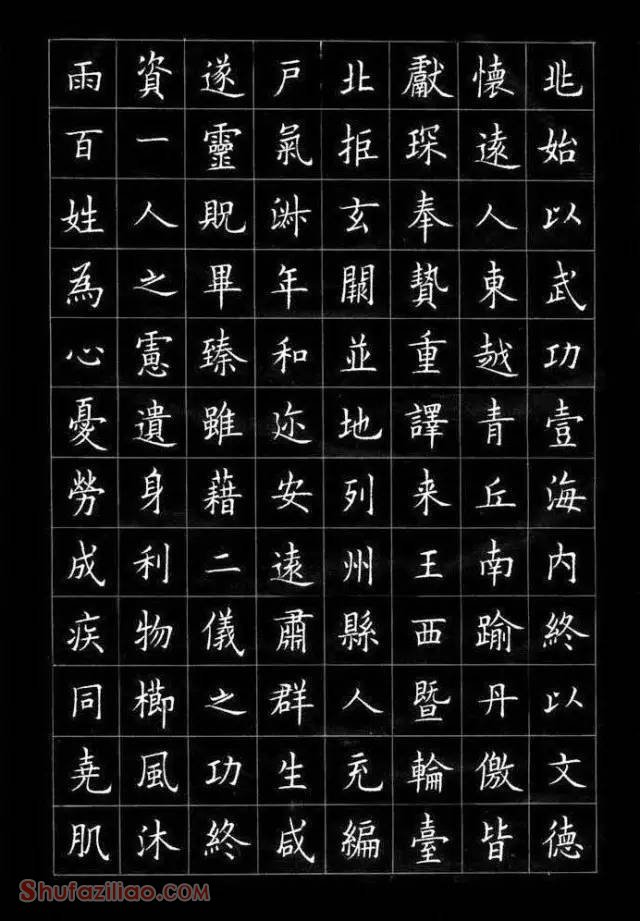 兆始以武功壹海内終以文德
懷遠人東越青丘南踰丹儌皆
獻琛奉贄重譯来王西暨輪臺
北拒玄闕並地列州縣人充編
戶氣淋年和迩安遠肅群生咸
遂靈貺畢臻雖藉二儀之功終
資一人之慮遺身利物櫛風沐
雨百姓為心憂勞成疾同堯肌
Shufaziliao.COM